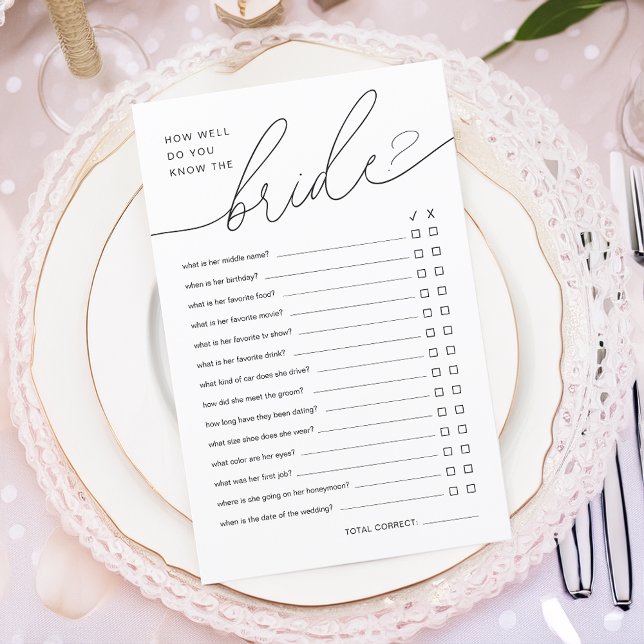 HOW WELL
DO YOU
KNOW THE
bride?
✓ X
what is her middle name?
when is her birthday?
what is her favorite food?
what is her favorite movie?
what is her favorite tv show?
what is her favorite drink?
what kind of car does she drive?
how did she meet the groom?
how long have they been dating?
what size shoe does she wear?
what color are her eyes?
what was her first job?
where is she going on her honeymoon?
when is the date of the wedding?
TOTAL CORRECT: